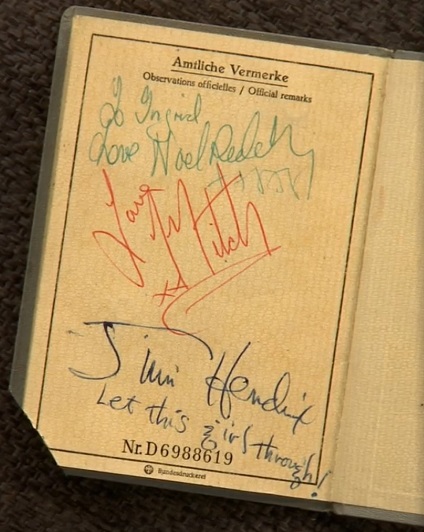 Amtliche Vermerke
Observations officielles / Official remarks
To Ingrid,
Love Noel Redding
xxxxx
Love
Mitch
xx
Jimi Hendrix
Let this girl through!
Nr. D 6988619
Bundesdruckerei